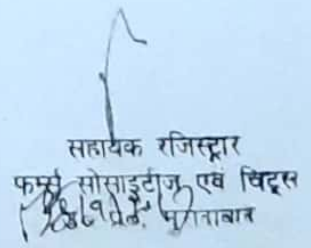 सहायक रजिस्ट्रार
फर्म्स सोसाइटीज एवं चिट्स
मुरादाबाद